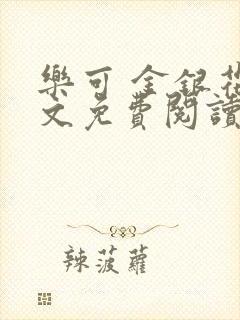 樂可 金銀花
文免費閱讀
辣菠蘿